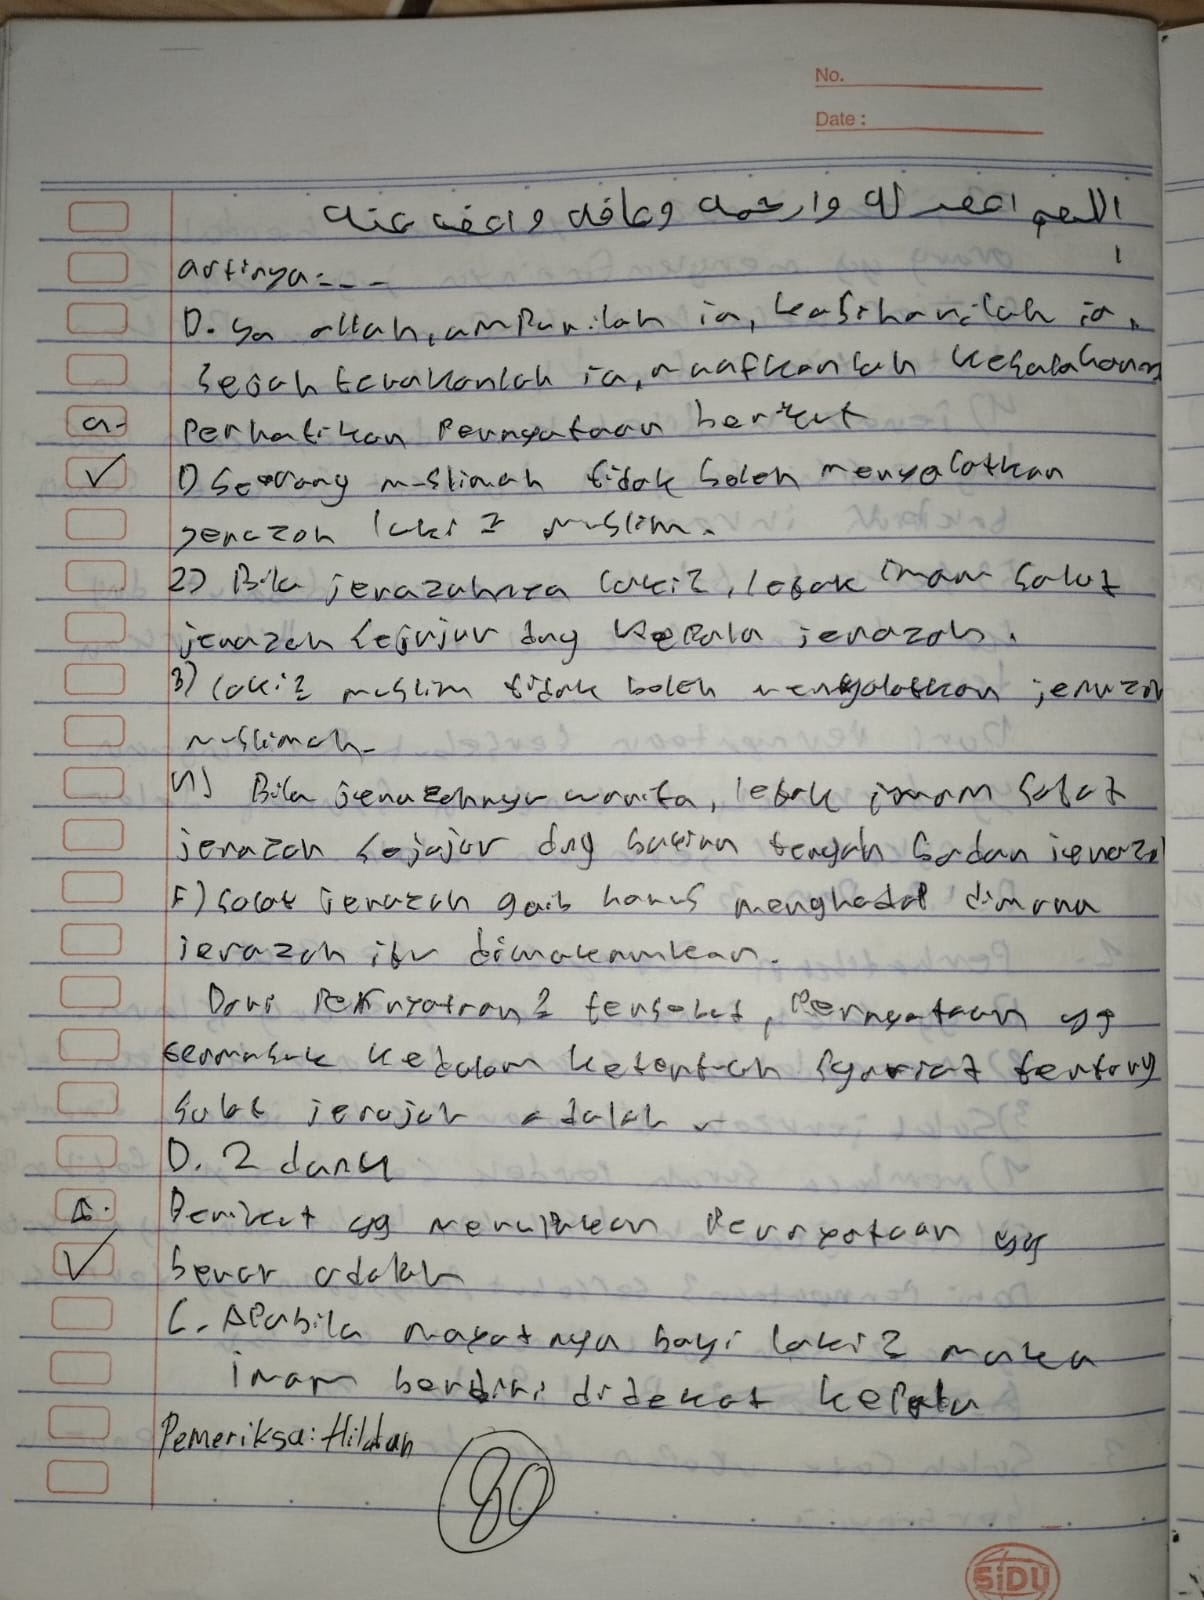 No.
Date :
اللهم اغفر له وارحمه وعافه واعف عنه
artinya: - - -
D. Ya allah, ampunilah ia, kasihanilah ia,
sejahterakanlah ia, maafkanlah kesalahannya
a. Perhatikan Pernyataan berikut
✓ 1) Seorang muslimah tidak boleh menyalatkan
jenazah laki2 muslim.
2) Bila jenazahnya laki2, letak imam salat
jenazah sejajar dng kepala jenazah.
3) laki2 muslim tidak boleh menyalatkan jenazah
muslimah.
4) Bila jenazahnya wanita, letak imam salat
jenazah sejajar dng bagian tengah badan jenazah
5) salat jenazah gaib harus menghadap dimana
jenazah itu dimakamkan.
Dari Pernyataan2 tersebut, Pernyataan yg
termasuk kedalam ketentuan syariat tentang
salat jenajah adalah
D. 2 dan 4
Berikut yg merupakan Pernyataan yg
✓ benar adalah
C. Apabila mayatnya bayi laki2 maka
imam berdiri didekat kepala
Pemeriksa: Hildan
80
SiDU